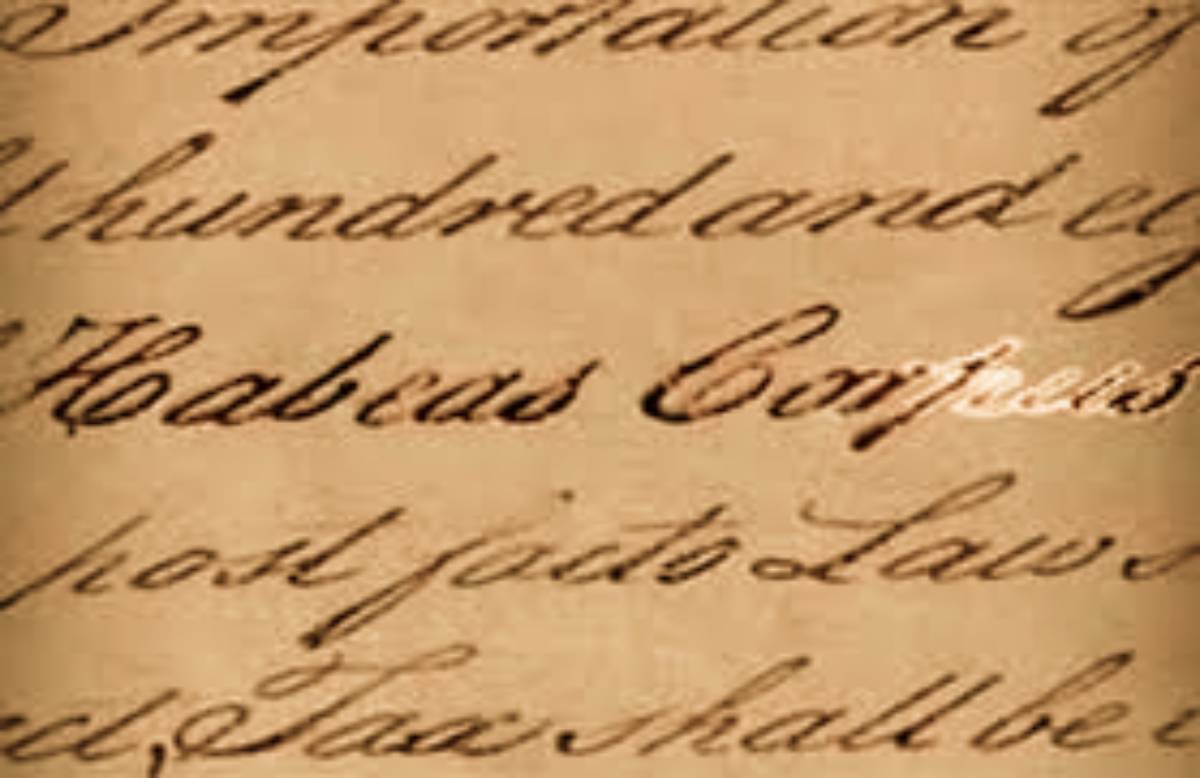 Importation of
hundred and eig
Habeas Corpus
post facto Laws
ed, Tax shall be